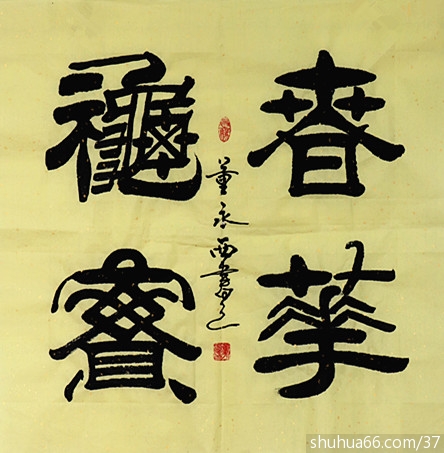 春華
龝實
董永西書之
shuhua66.com/37